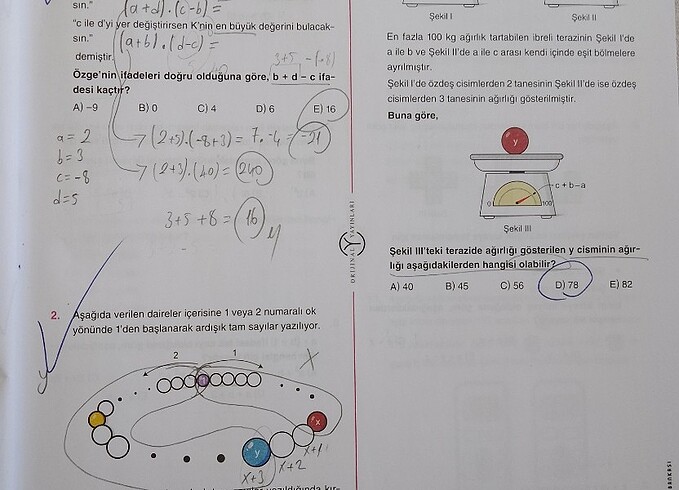 sın."
(a+d).(c-b)=
"c ile d'yi yer değiştirirsen K'nin en büyük değerini bulacak-
sın."
(a+b).(d-c)=
demiştir.
3+5-(-8)
Özge'nin ifadeleri doğru olduğuna göre, b + d – c ifa-
desi kaçtır?
A) –9 B) 0 C) 4 D) 6 E) 16
a = 2
b = 3
c = -8
d = 5
(2+5).(-8+3) = 7.-4 = -21
(2+3).(40) = 240
3+5+8 = 16
2. Aşağıda verilen daireler içerisine 1 veya 2 numaralı ok
yönünde 1'den başlanarak ardışık tam sayılar yazılıyor.
2 1
x
x
y
x+1
x+2
x+3
ORİJİNAL YAYINLARI
Şekil I Şekil II
En fazla 100 kg ağırlık tartabilen ibreli terazinin Şekil I'de
a ile b ve Şekil II'de a ile c arası kendi içinde eşit bölmelere
ayrılmıştır.
Şekil I'de özdeş cisimlerden 2 tanesinin Şekil II'de ise özdeş
cisimlerden 3 tanesinin ağırlığı gösterilmiştir.
Buna göre,
y
c + b – a
0 100
Şekil III
Şekil III'teki terazide ağırlığı gösterilen y cisminin ağır-
lığı aşağıdakilerden hangisi olabilir?
A) 40 B) 45 C) 56 D) 78 E) 82
BANKASI